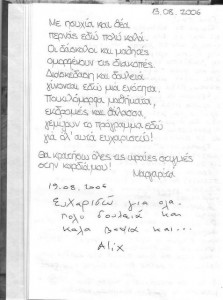 13.08.2006
Με ησυχία και θέα
περνάς εδώ πολύ καλά.
Οι δάσκαλοι και μαθητές
ομορφαίνουν τις διακοπές.
Διασκέδαση και δουλειά
γίνονται εδώ μια ενότητα.
Ποικιλόμορφα μαθήματα,
εκδρομές και θάλασσα,
γεμίζουν το πρόγραμμα εδώ
για όλ' αυτά ευχαριστώ!
Θα κρατήσω όλες τις ωραίες στιγμές
στην καρδιά μου!
Μαργαρίτα
19.08.2006
Ευχαριστώ για όλα.
πολο δουλειά και
καλα και...
Alix